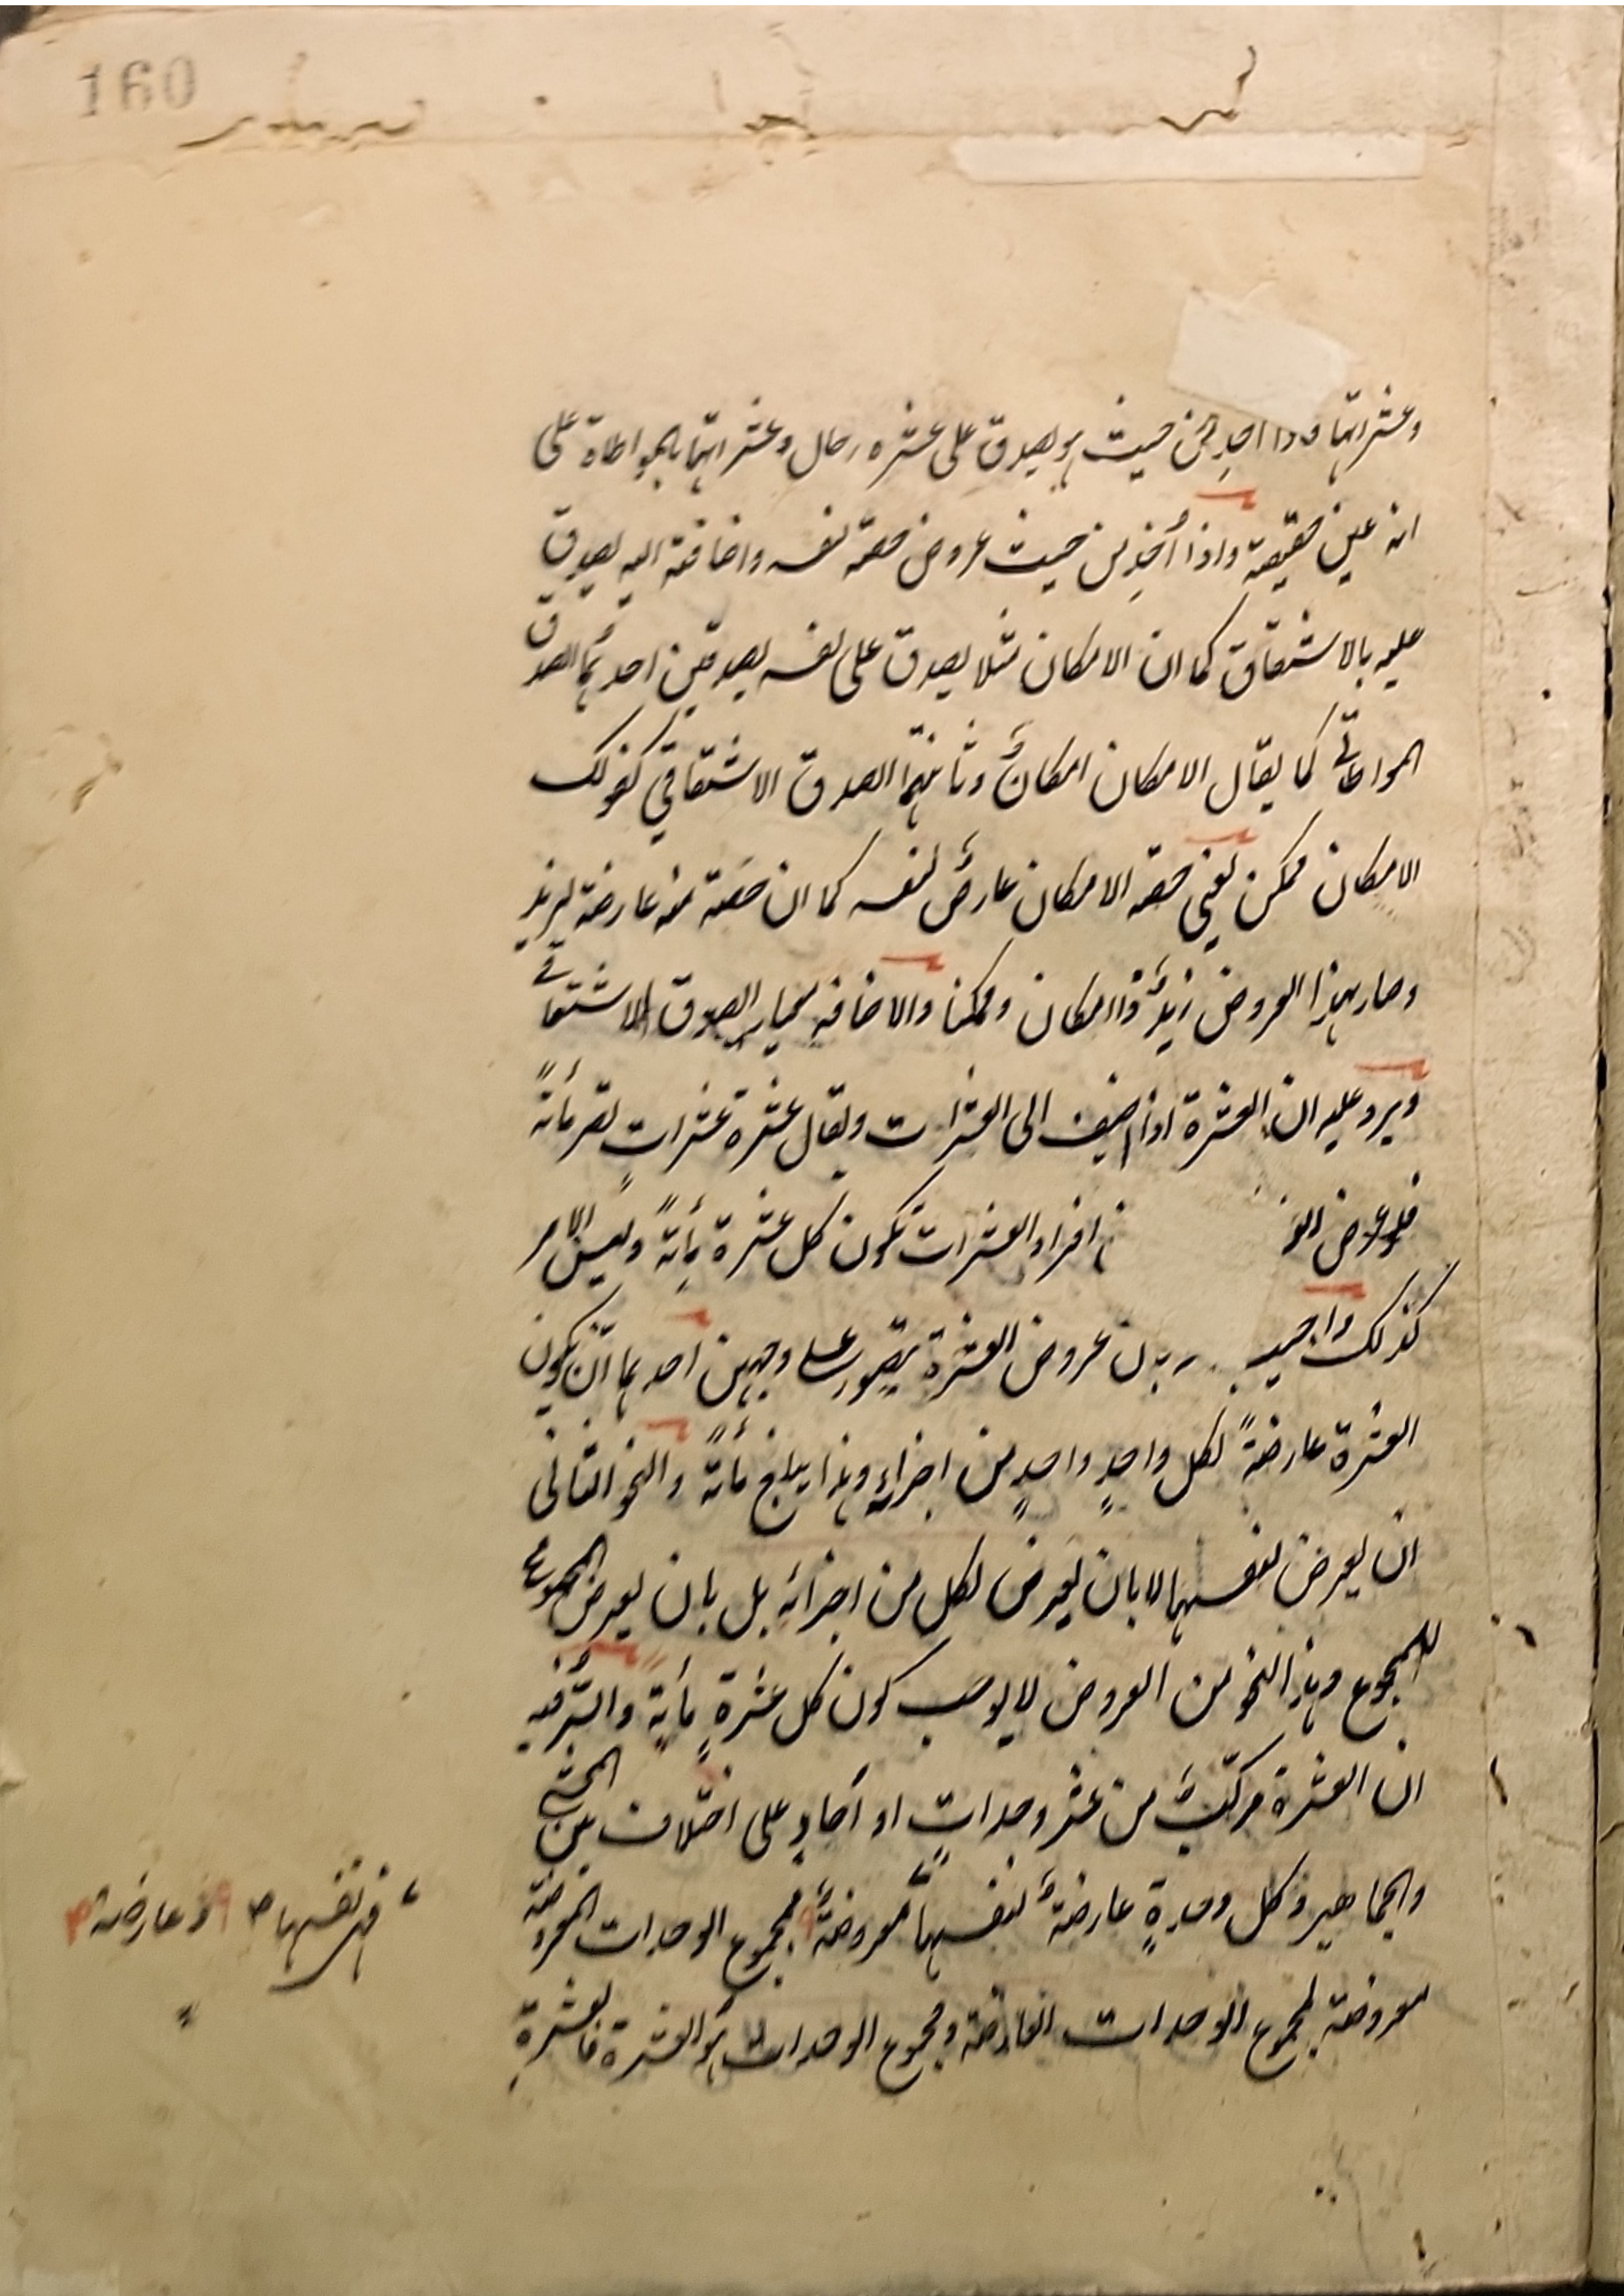 160
وعشراتها فاذا اخذ من حيث هو يصدق على عشرة رجال وعشراتها بالمواطاة على
انه عين حقيقته واذا أُخِذ من حيث عروض حصة لنفسه واضافته اليه يصدق
عليه بالاشتقاق كما ان الامكان مثلا يصدق على نفسه بصدقين احدهما الصدق
المواطاتي كما يقال الامكان امكانٌ وثانيهما الصدق الاشتقاقي كقولك
الامكان ممكن يعني حصة الامكان عارضٌ لنفسه كما ان حصة منه عارضة لزيد
وصار بهذا العروض زيدٌ ذا امكان وممكنا والاضافة معيار الصدق الاشتقاقي
ويرد عليه ان العشرة اذا اضيف الى العشرات ويقال عشرة عشراتٍ تصر مأتةً
فلو عروض الو افراد العشرات تكون كل عشرة مأتةً وليس الامر
كذلك واجيب بان عروض العشرة يتصور على وجهين احدهما ان تكون
العشرة عارضةً لكل واحدٍ واحدٍ من اجزاءٍ وهذا يبلغ مأتةً والنحو الثاني
ان يعرض لنفسها لا بان يعرض لكل من اجزائه بل بان يعرض المجموع
للمجموع وهذا النحو من العروض لا يوجب كون كل عشرةٍ مأيةً والسّر فيه
ان العشرة مركبٌ من عشر وحداتٍ او آحادٍ على اختلاف بين المحشي
والجماهير وكل وحدةٍ عارضةٌ لنفسها معروضةٌ مجموع الوحدات المعروضة
معروضة لمجموع الوحدات العارضة ومجموع الوحدات هو العشرة فالعشرة
فهي نفسها ۱۲ وعارضة ۱۲